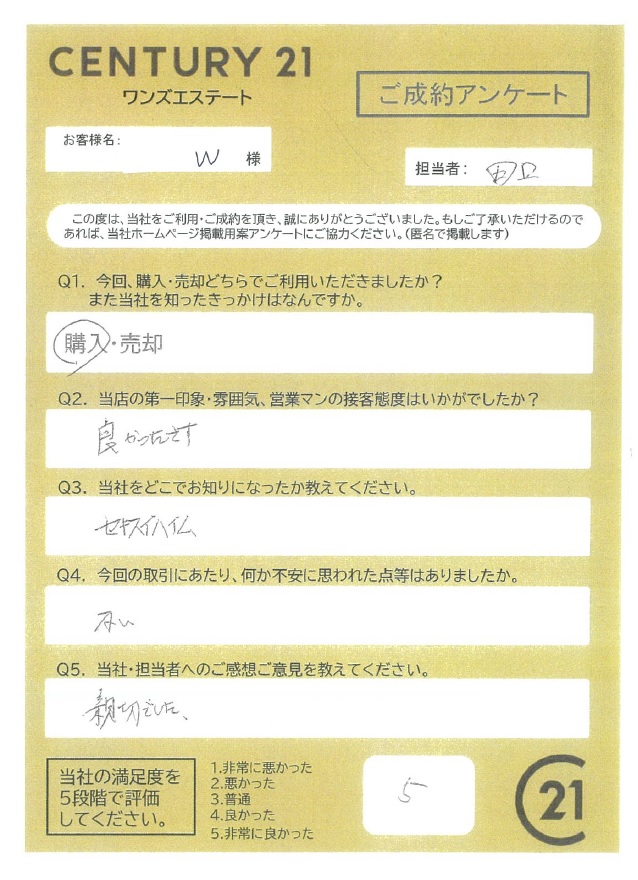 CENTURY 21
ワンズエステート
ご成約アンケート
お客様名:
W 様
担当者:
この度は、当社をご利用・ご成約を頂き、誠にありがとうございました。もしご了承いただけるので
あれば、当社ホームページ掲載用案アンケートにご協力ください。(匿名で掲載します)
Q1. 今回、購入・売却どちらでご利用いただきましたか?
また当社を知ったきっかけはなんですか。
購入・売却
Q2. 当店の第一印象・雰囲気、営業マンの接客態度はいかがでしたか?
良かったです
Q3. 当社をどこでお知りになったか教えてください。
セキスイハイム
Q4. 今回の取引にあたり、何か不安に思われた点等はありましたか。
ない
Q5. 当社・担当者へのご感想ご意見を教えてください。
親切でした、
当社の満足度を
5段階で評価
してください。
1.非常に悪かった
2.悪かった
3.普通
4.良かった
5.非常に良かった
5
21